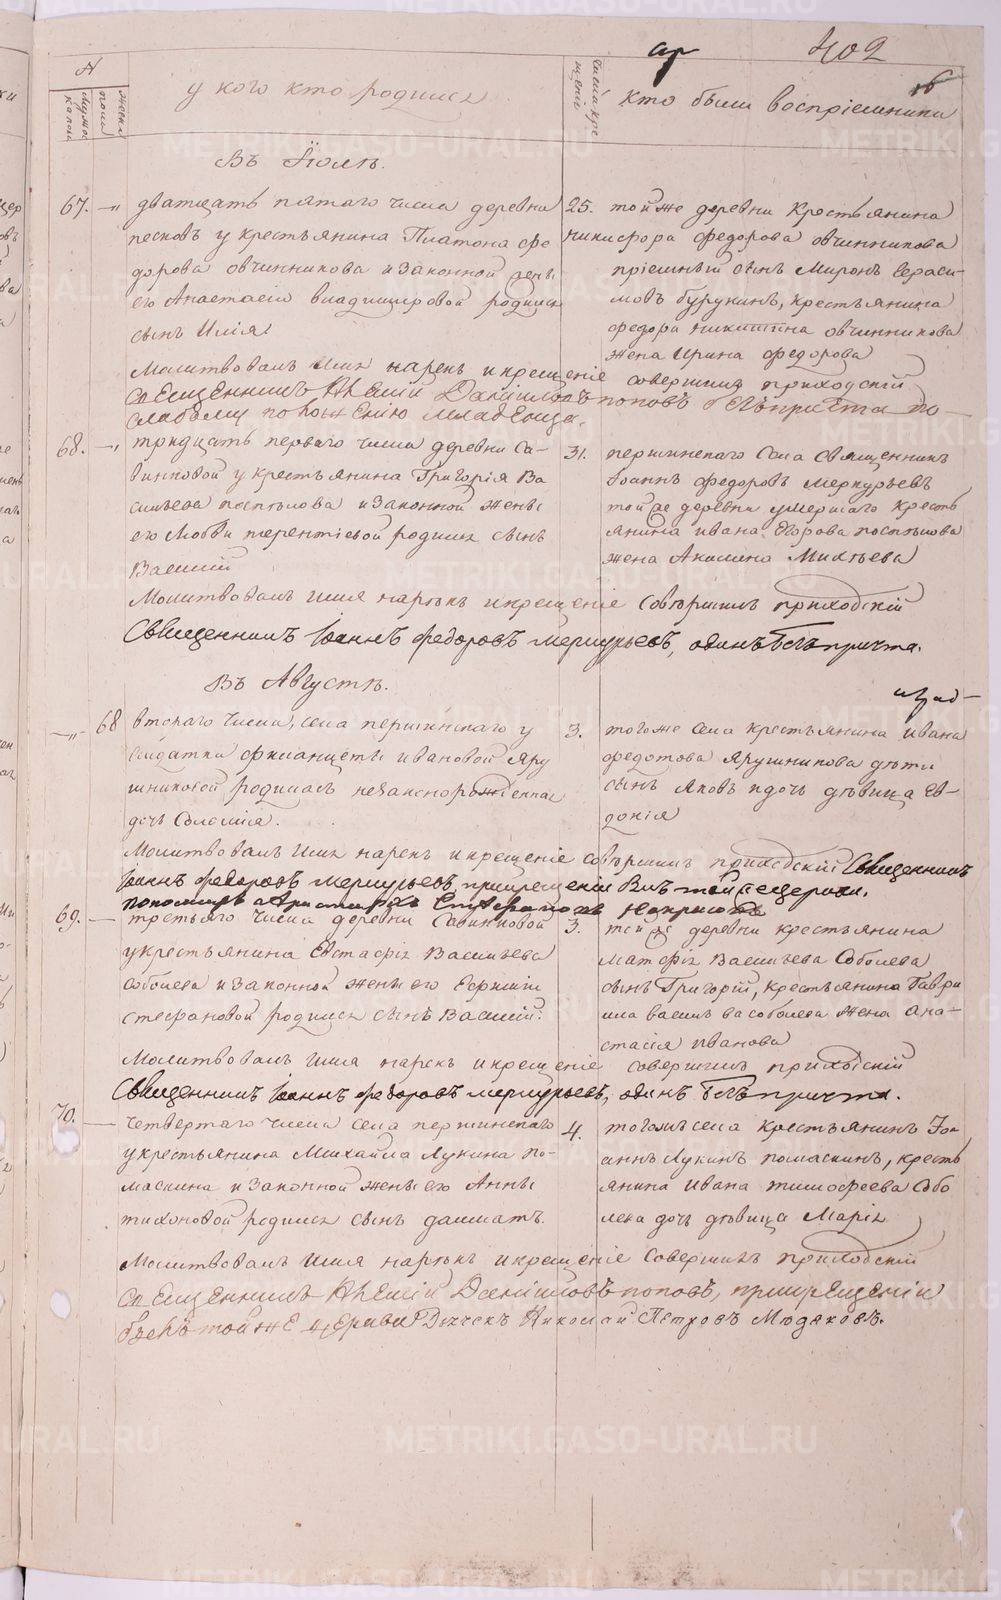 402
№
мужеска
полу
женска
у кого кто родился
числа крещеніе
кто были воспріемники
Въ Іюлѣ.
67. —„ дватцать пятаго числа деревни
песковъ у крестьянина Платона Фе-
дорова овчинникова и законной жены
его Анастасіи владимировой родился
сынъ Илія
25. той же деревни крестьянина
никифора федорова овчинникова
пріемный сынъ Миронъ Гераси-
мовъ бурунинъ, крестьянина
федора никитина овчинникова
жена Ирина федорова
Молитвовалъ имя нарекъ и крещеніе совершилъ приходскій
священникъ Алексій Даниловъ поповъ безъ причта по
слабому положенію младенца.
68. —„ тридцать перваго числа деревни Са-
винковой у крестьянина Григорія Ва
сильева поспелова и законной жены
его Любви терентіевой родился сынъ
Василій
31. першинскаго села Священникъ
Іоаннъ федоровъ Меркурьевъ
той же деревни умершаго кресть
янина ивана Егорова поспелова
жена Акилина Михѣева
Молитвовалъ имя нарекъ и крещеніе совершилъ приходскій
Священникъ Іоаннъ федоровъ меркурьевъ, одинъ безъ причта.
Въ Августѣ.
—„— 68 втораго числа, села першинскаго у
солдатки ивановой Яру
шниковой родилась незаконнорожденная
дочь Соломія.
3. того же села крестьянина ивана
федотова Ярушникова дѣти
сынъ Яковъ и дочь дѣвица Ев-
докія
Молитвовалъ имя нарекъ и крещеніе совершилъ приходскій Священникъ
Іоаннъ федоровъ меркурьевъ, при крещеніи былъ той же церкви
пономарь
69. — третьяго числа деревни Савинковой
у крестьянина Евстафія Васильева
Соболева и законной жены его
стефановой родился сынъ Василій.
3. той же деревни крестьянина
Матфія Васильева Соболева
сынъ Григорій, крестьянина Гаври
ила васильева соболева жена Ана-
стасія иванова
Молитвовалъ имя нарекъ и крещеніе совершилъ приходскій
Священникъ Іоаннъ федоровъ меркурьевъ, одинъ безъ причта.
70. — четвертаго числа села першинскаго
у крестьянина Михайла Лукина по-
маскина и законной жены его Анны
тихоновой родился сынъ далматъ.
4. того же села крестьянинъ Іо-
аннъ Лукинъ помаскинъ, кресть
янина Ивана тимофеева Собо
лева дочь дѣвица Марія
Молитвовалъ имя нарекъ и крещеніе совершилъ приходскій
священникъ Алексій Даниловъ поповъ, при крещеніи
былъ той же церкви Дьячекъ Николай Петровъ Мюдяковъ.